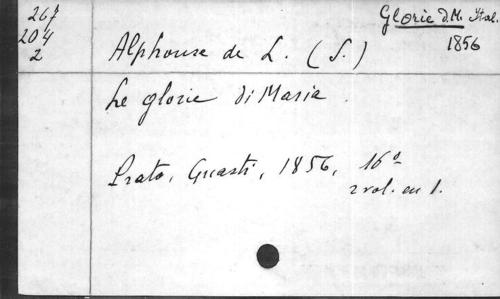 267
204
2
Glorie d.M. Ital.
1856
Alphonse de L. (S.)
Le glorie di Maria.
Prato, Guasti, 1856, 16°
2 vol. en 1.